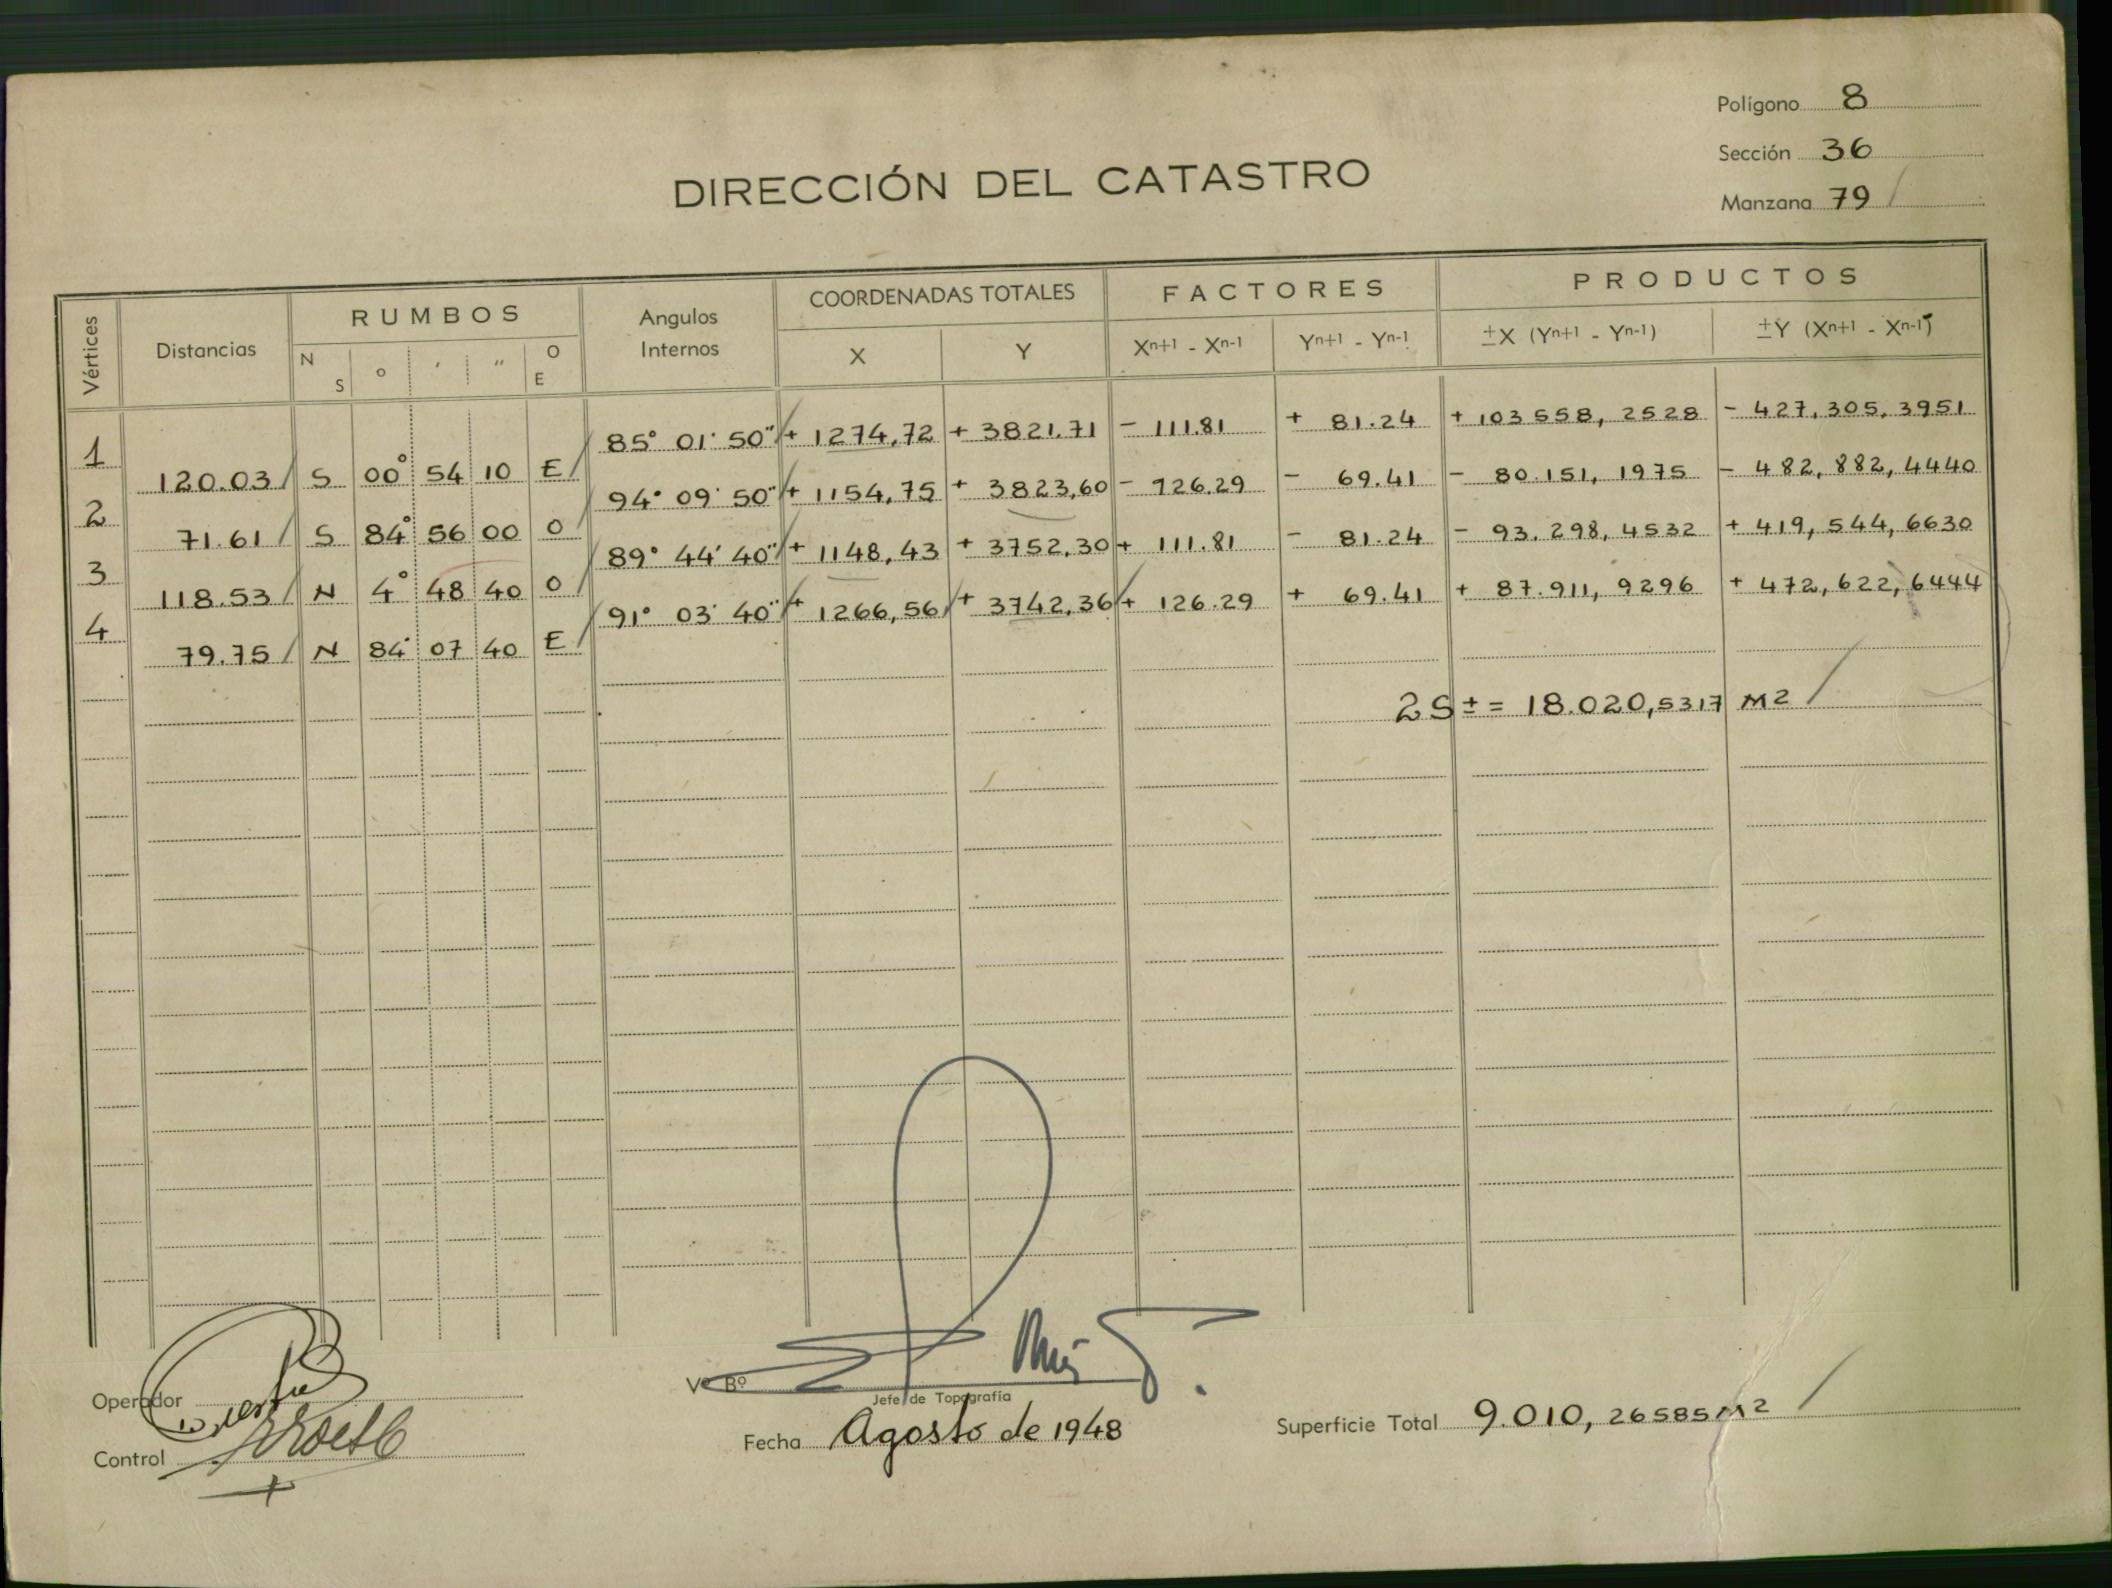 Polígono 8
Sección 36
Manzana 79
DIRECCIÓN DEL CATASTRO
Vértices Distancias RUMBOS Angulos Internos COORDENADAS TOTALES FACTORES PRODUCTOS
N S ° ' " O E X Y Xn+1 - Xn-1 Yn+1 - Yn-1 ±X (Yn+1 - Yn-1) ±Y (Xn+1 - Xn-1)
1 85° 01' 50" + 1274,72 + 3821.71 - 111.81 + 81.24 + 103558, 2528 - 427.305.3951
120.03 S 00° 54 10 E
2 94° 09' 50" + 1154,75 + 3823,60 - 126.29 - 69.41 - 80.151, 1975 - 482,882,4440
71.61 S 84° 56 00 O
3 89° 44' 40" + 1148,43 + 3752,30 + 111.81 - 81.24 - 93.298,4532 + 419,544,6630
118.53 N 4° 48 40 O
4 91° 03' 40" + 1266,56 + 3742,36 + 126.29 + 69.41 + 87.911, 9296 + 472,622,6444
79.75 N 84° 07 40 E
2S ± = 18.020,5317 M2
Operador
Control
Vº Bº
Jefe de Topografía
Fecha Agosto de 1948
Superficie Total 9.010, 26585 M2